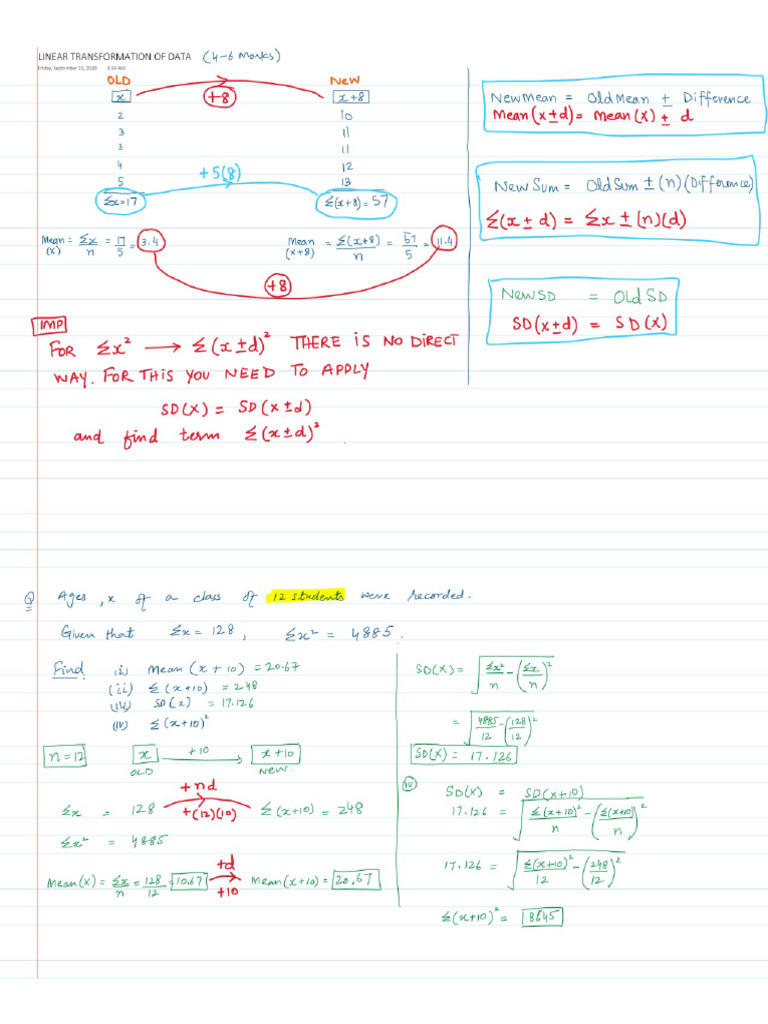 LINEAR TRANSFORMATION OF DATA (4-6 Marks)
Friday, September 11, 2020 8:54 AM
OLD
NEW
x
+8
x+8
2
10
3
11
3
11
4
12
5
13
+5(8)
Σx=17
Σ(x+8) = 57
Mean(x) = Σx/n = 17/5 = 3.4
Mean(x+8) = Σ(x+8)/n = 57/5 = 11.4
+8
New Mean = Old Mean ± Difference
Mean(x±d) = mean(x) ± d
New Sum = Old Sum ± (n)(Difference)
Σ(x±d) = Σx ± (n)(d)
New SD = Old SD
SD(x±d) = SD(x)
IMP
FOR Σx² → Σ(x±d)² THERE IS NO DIRECT
WAY. FOR THIS YOU NEED TO APPLY
SD(x) = SD(x±d)
and find term Σ(x±d)².
Q Ages, x of a class of 12 students were recorded.
Given that Σx = 128, Σx² = 4885.
Find (i) Mean(x+10) = 20.67
(ii) Σ(x+10) = 248
(iii) SD(x) = 17.126
(iv) Σ(x+10)²
n=12
x
+10
x+10
OLD
NEW.
+nd
Σx = 128
+(12)(10)
Σ(x+10) = 248
Σx² = 4885
Mean(x) = Σx/n = 128/12 = 10.67
+d
+10
Mean(x+10) = 20.67
SD(x) = √(Σx²/n - (Σx/n)²)
= √(4885/12 - (128/12)²)
SD(x) = 17.126
(iv) SD(x) = SD(x+10)
17.126 = √(Σ(x+10)²/n - (Σ(x+10)/n)²)
17.126 = √(Σ(x+10)²/12 - (248/12)²)
Σ(x+10)² = 8645